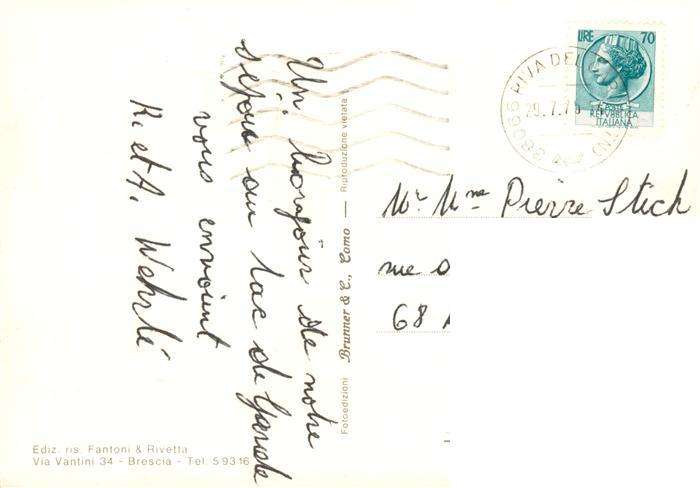 Un bonjour de notre
séjour au lac de Garde
vous envoient
R. et A. Wehrlé
Fotoedizioni Brunner & C., Como — Riproduzione vietata
Ediz. ris. Fantoni & Rivetta
Via Vantini 34 - Brescia - Tel. 59316
LIRE 70
POSTE
REPVBBLICA
ITALIANA
38066 RIVA DEL
29.7.7
(TN)
Mr. Mme Pierre Stich
rue
68